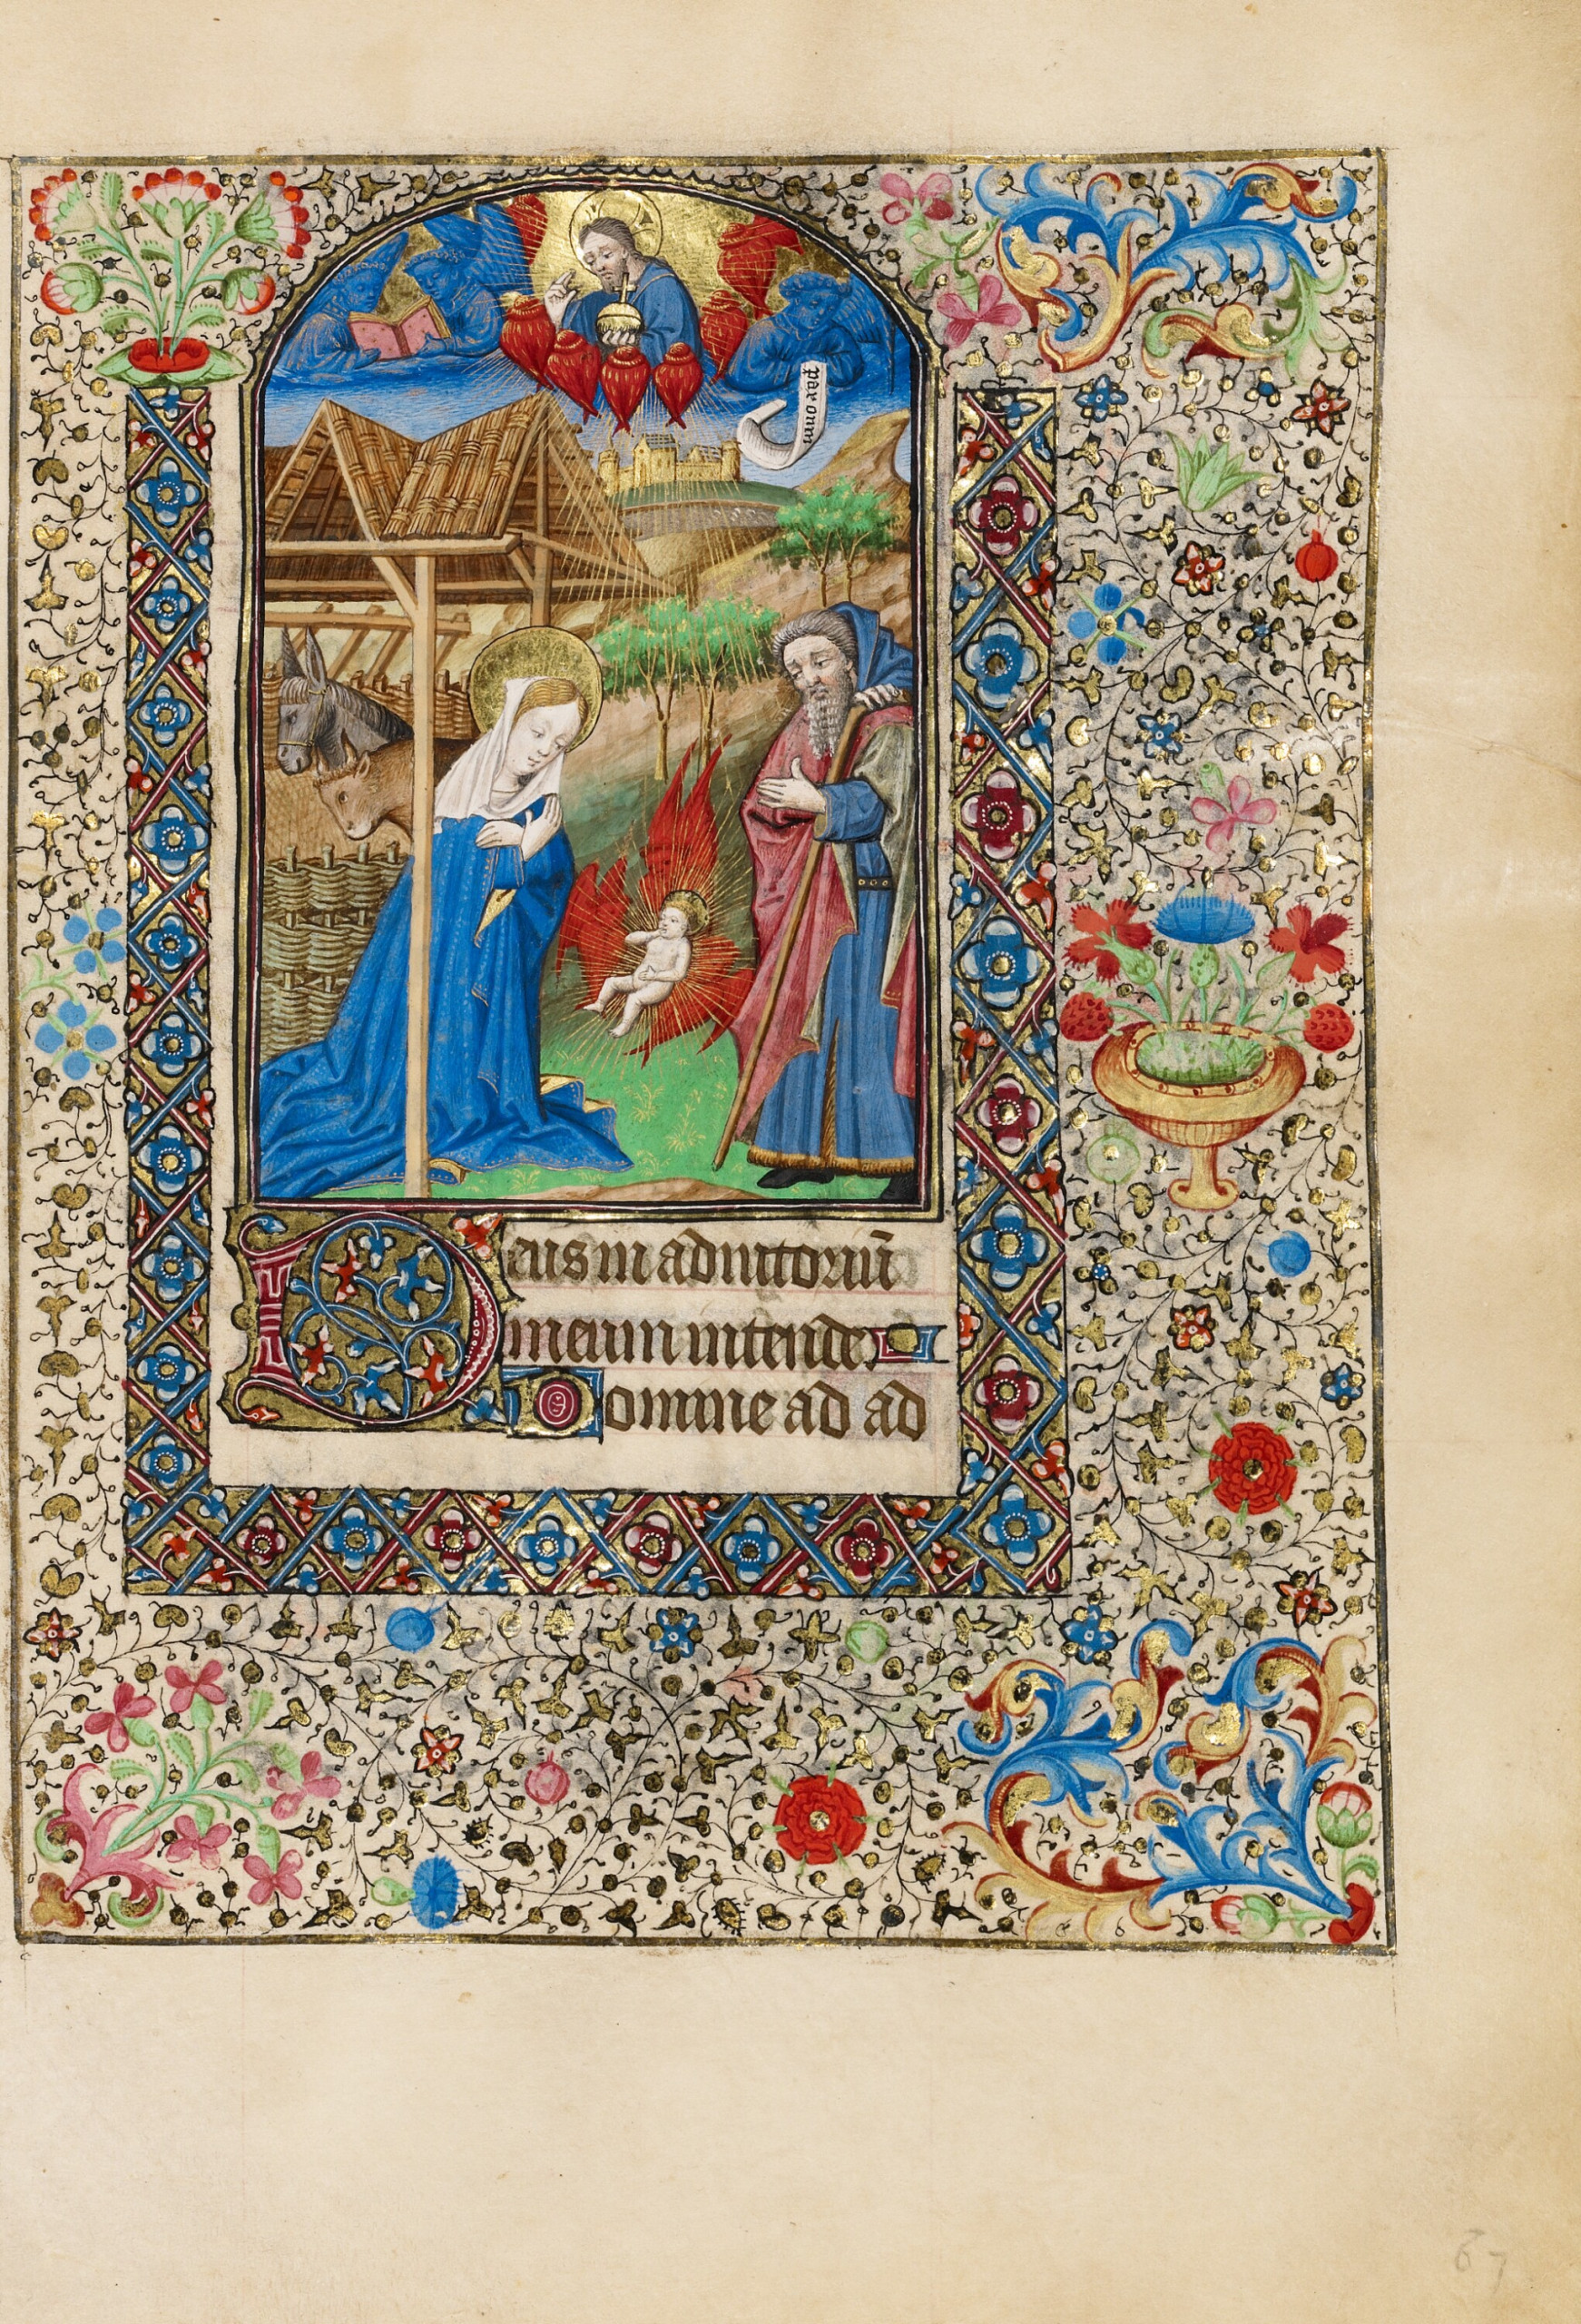 pax omni
Deus in adiutoriū
meum intende
Domine ad ad
67